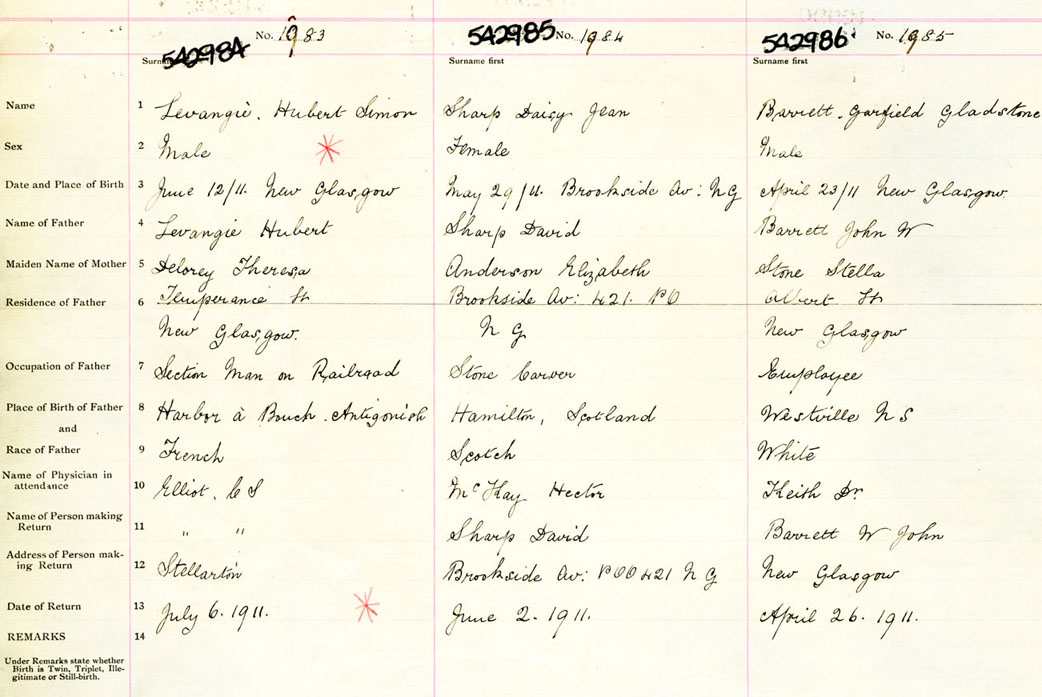 No. 1983 No. 1984 No. 1985
542984 542985 542986
Surname first Surname first
Name 1 Levangie, Hubert Simon Sharp Daisy Jean Barrett, Garfield Gladstone
Sex 2 Male Female Male
Date and Place of Birth 3 June 12/11. New Glasgow May 29/11. Brookside Av: N G April 23/11 New Glasgow.
Name of Father 4 Levangie Hubert Sharp David Barrett John W
Maiden Name of Mother 5 Delorey Theresa Anderson Elizabeth Stone Stella
Residence of Father 6 Temperance St Brookside Av: 421. PO Albert St
New Glasgow. N G New Glasgow
Occupation of Father 7 Section Man on Railroad Stone Carver Employee
Place of Birth of Father 8 Harbor à Bouch. Antigonish Hamilton, Scotland Westville N S
and
Race of Father 9 French Scotch White
Name of Physician in
attendance 10 Elliot, C S McKay Hector Keith Dr
Name of Person making
Return 11 " " Sharp David Barrett W John
Address of Person mak-
ing Return 12 Stellarton Brookside Av: POO 421 N G New Glasgow
Date of Return 13 July 6. 1911. June 2. 1911. April 26. 1911.
REMARKS 14
Under Remarks state whether
Birth is Twin, Triplet, Ille-
gitimate or Still-birth.